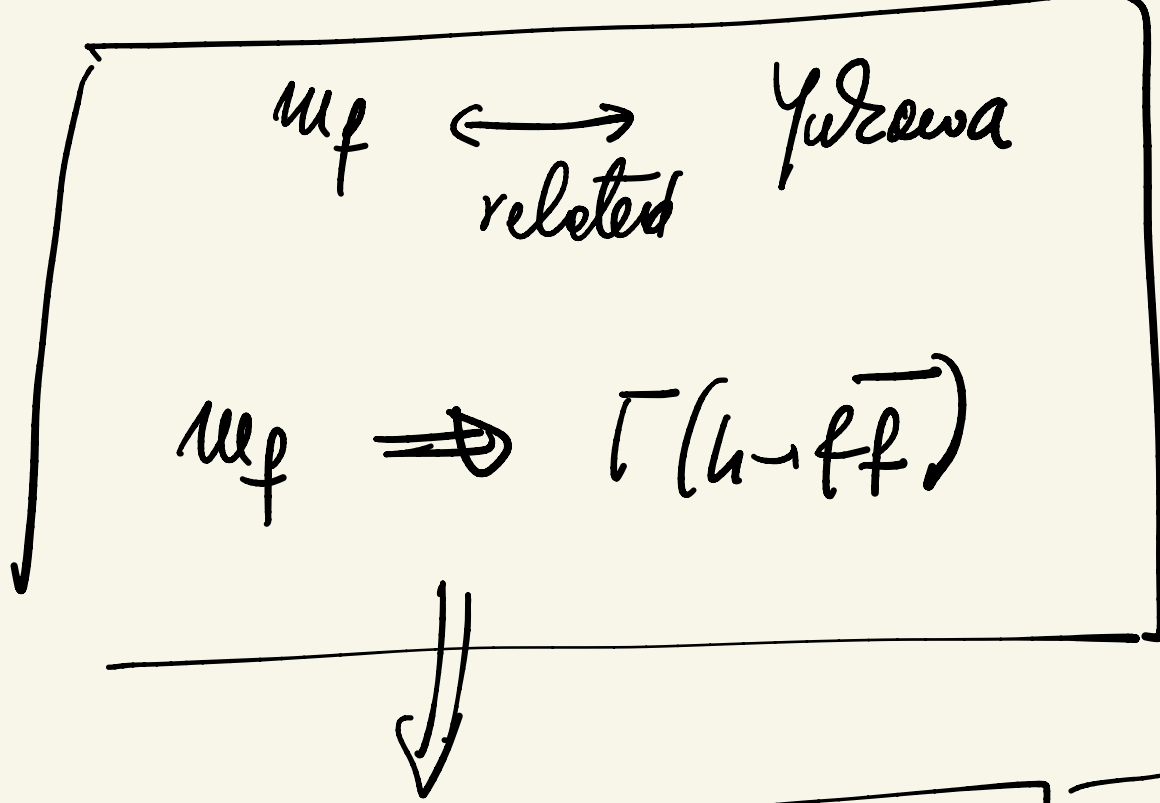 m_f ↔ Yukawa
related
m_f ⇒ Γ(h→f f̅)
⇓